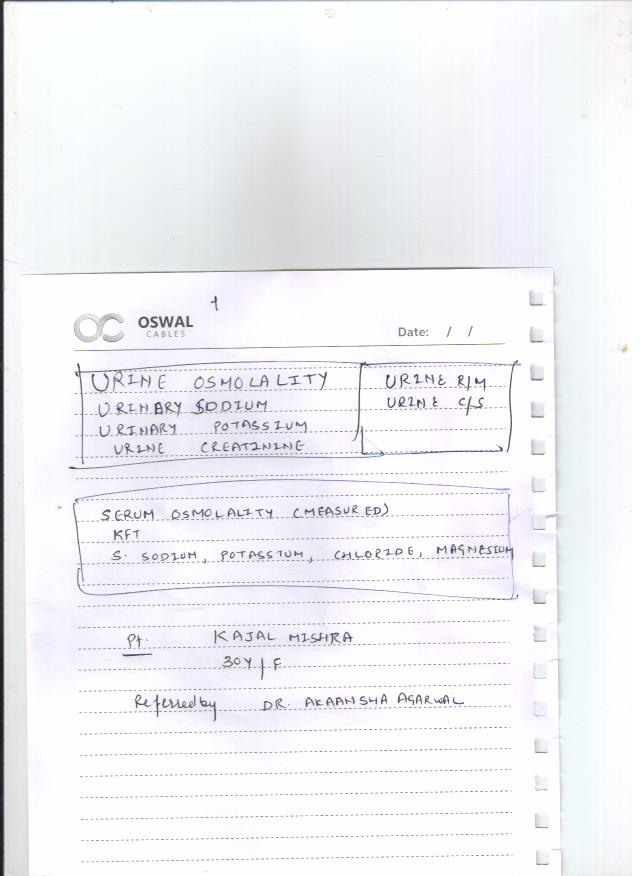 1
OC OSWAL
CABLES
Date: / /
URINE OSMOLALITY
URINARY SODIUM
URINARY POTASSIUM
URINE CREATININE
URINE R/M
URINE C/S
SERUM OSMOLALITY (MEASURED)
KFT
S. SODIUM, POTASSIUM, CHLORIDE, MAGNESIUM
Pt. KAJAL MISHRA
30Y/F
Referred by DR. AKAANSHA AGARWAL